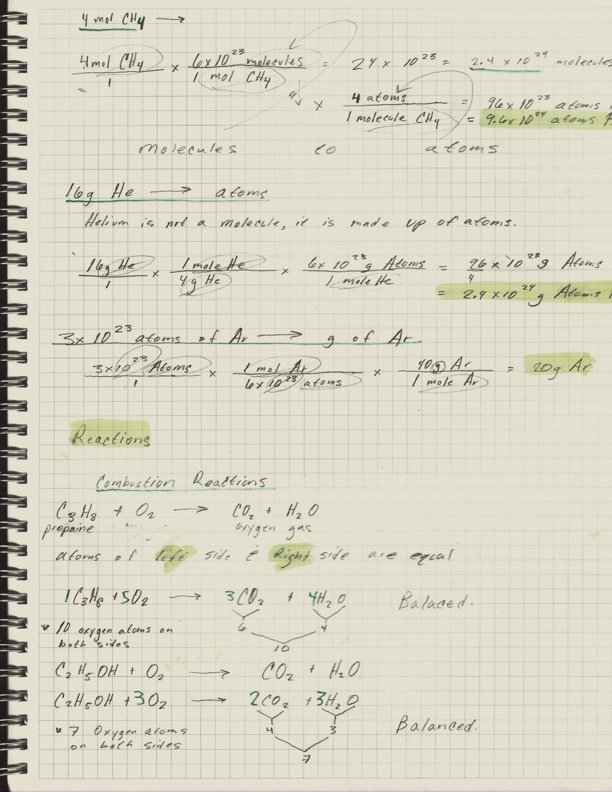 4 mol CH4 →
4mol CH4 / 1 × 6x10^23 molecules / 1 mol CH4 = 24 × 10^23 = 2.4 x 10^24 molecules
" " × 4 atoms / 1 molecule CH4 = 96x10^23 atoms
= 9.6x10^24 atoms
molecules to atoms
16g He → atoms
Helium is not a molecule, it is made up of atoms.
16g He / 1 × 1 mole He / 4g He × 6x10^23 g Atoms / 1 mole He = 96 x 10^23 g Atoms / 4
= 2.4 x 10^24 g Atoms
3x10^23 atoms of Ar → g of Ar
3x10^23 Atoms / 1 × 1 mol Ar / 6x10^23 atoms × 40g Ar / 1 mole Ar = 20g Ar
Reactions
Combustion Reactions
C3H8 + O2 → CO2 + H2O
propaine oxygen gas
atoms of left side & Right side are equal
1C3H8 + 5O2 → 3CO2 + 4H2O Balaced.
6 4
10 oxygen atoms on
both sides
10
C2H5OH + O2 → CO2 + H2O
C2H5OH + 3O2 → 2CO2 + 3H2O
4 3
Balanced.
7 Oxygen atoms
on both sides
7